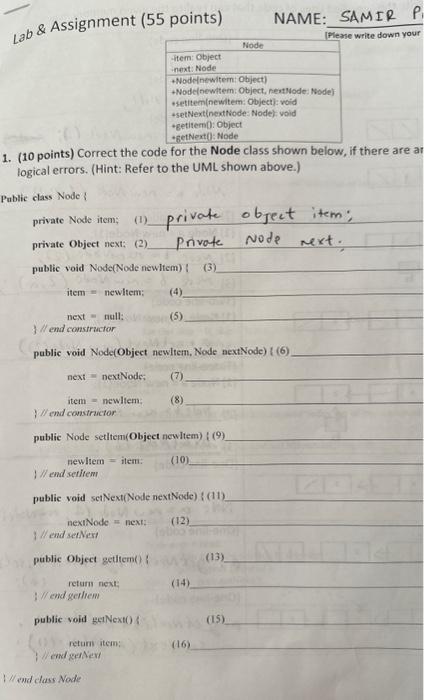 Lab & Assignment (55 points) NAME: SAMIR P.
(Please write down your
Node
-item: Object
-next: Node
+Node(newItem: Object)
+Node(newItem: Object, nextNode: Node)
+setItem(newItem: Object): void
+setNext(nextNode: Node): void
+getItem(): Object
+getNext(): Node
1. (10 points) Correct the code for the Node class shown below, if there are
logical errors. (Hint: Refer to the UML shown above.)
Public class Node {
private Node item; (1) private object item;
private Object next; (2) Private Node next.
public void Node(Node newItem) { (3)
item = newItem; (4)
next = null; (5)
} // end constructor
public void Node(Object newItem, Node nextNode) { (6)
next = nextNode; (7)
item = newItem; (8)
} // end constructor
public Node setItem(Object newItem) { (9)
newItem = item; (10)
} // end setItem
public void setNext(Node nextNode) { (11)
nextNode = next; (12)
} // end setNext
public Object getItem() { (13)
return next; (14)
} // end getItem
public void getNext() { (15)
return item; (16)
} // end getNext
} // end class Node